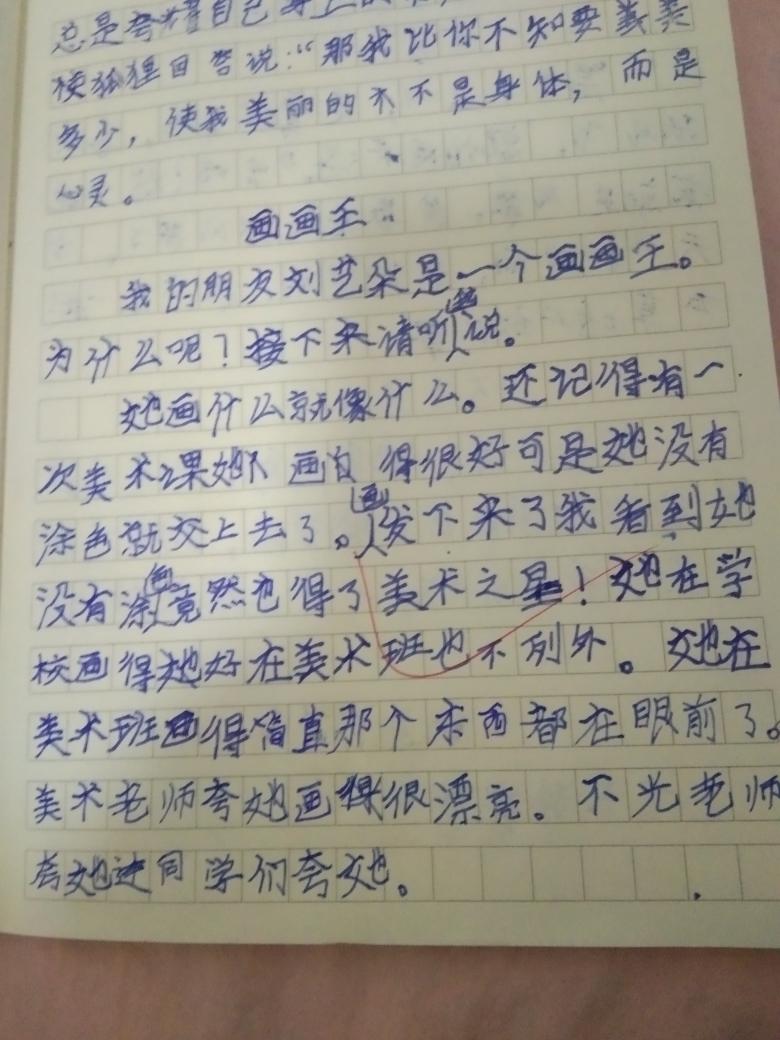 总是夸耀自己身上的
使狐狸回答说：“那我比你不知要美
多少，使我美丽的不是身体，而是
心灵。
画画王
我的朋友刘艺朵是一个画画王。
为什么呢？接下来请听我说。
她画什么就像什么。还记得有一
次美术课她 画 得很好可是她没有
涂色就交上去了。画发下来了我看到她
没有涂色竟然也得了美术之星！她在学
校画得她好在美术班也不列外。她在
美术班画得简直那个东西都在眼前了。
美术老师夸她画得很漂亮。不光老师
夸她连同学们夸她。